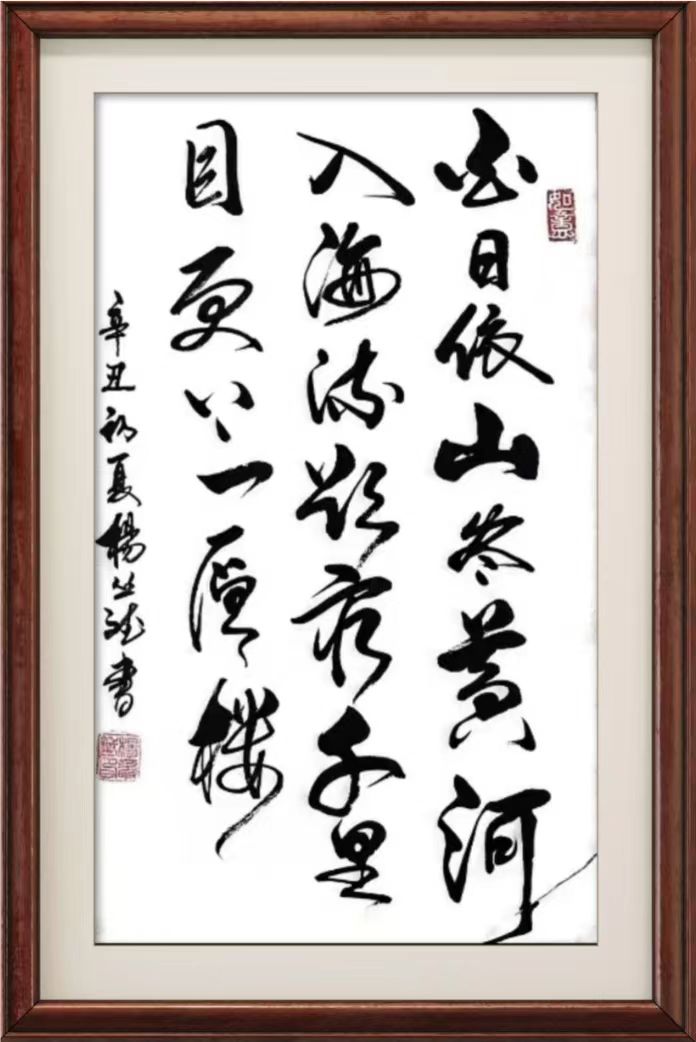 白日依山尽黄河
入海流欲穷千里
目更上一層楼
辛丑初夏楊書
如意